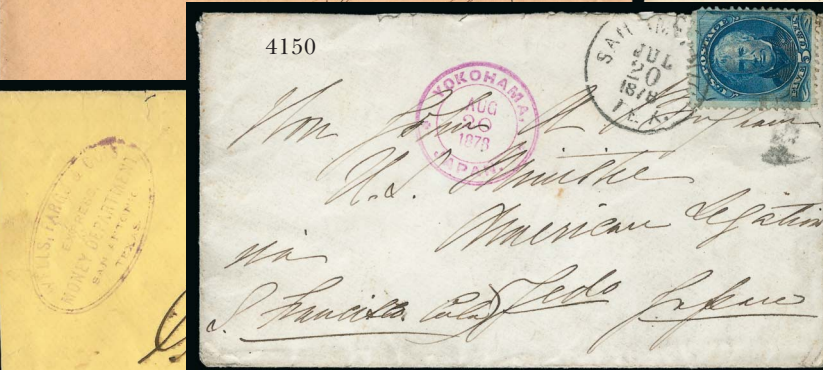 4150
SAN ANTONIO
JUL
20
1878
TEX.
YOKOHAMA,
AUG
26
1878
JAPAN.
Hon John A Bingham
U.S. Minister
American Legation
via Jedo Japan
S. Francisco Cala
WELLS, FARGO & CO
EXPRESS
MONEY DEPARTMENT
SAN ANTONIO
TEXAS.